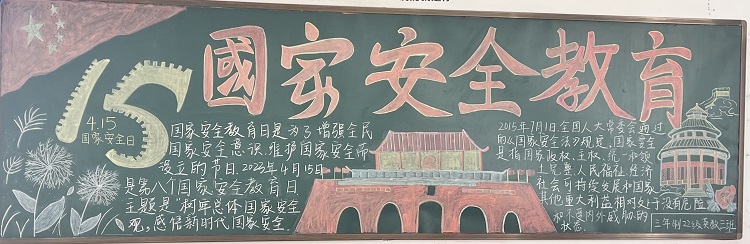 國家安全教育
15
4.15
国家安全日
国家安全教育日是为了增强全民
国家安全意识,维护国家安全而
设立的节日。2023年4月15日
是第八个国家安全教育日
主题是“树牢总体国家安全
观,感悟新时代国家安全
2015年7月1日,全国人大常委会通过
的《国家安全法》规定,国家安全
是指国家政权、主权、统一和领
土完整、人民福祉、经济
社会可持续发展和国家
其他重大利益相对处于没有危险
和不受内外威胁的
状态。
三年制22级英教三班